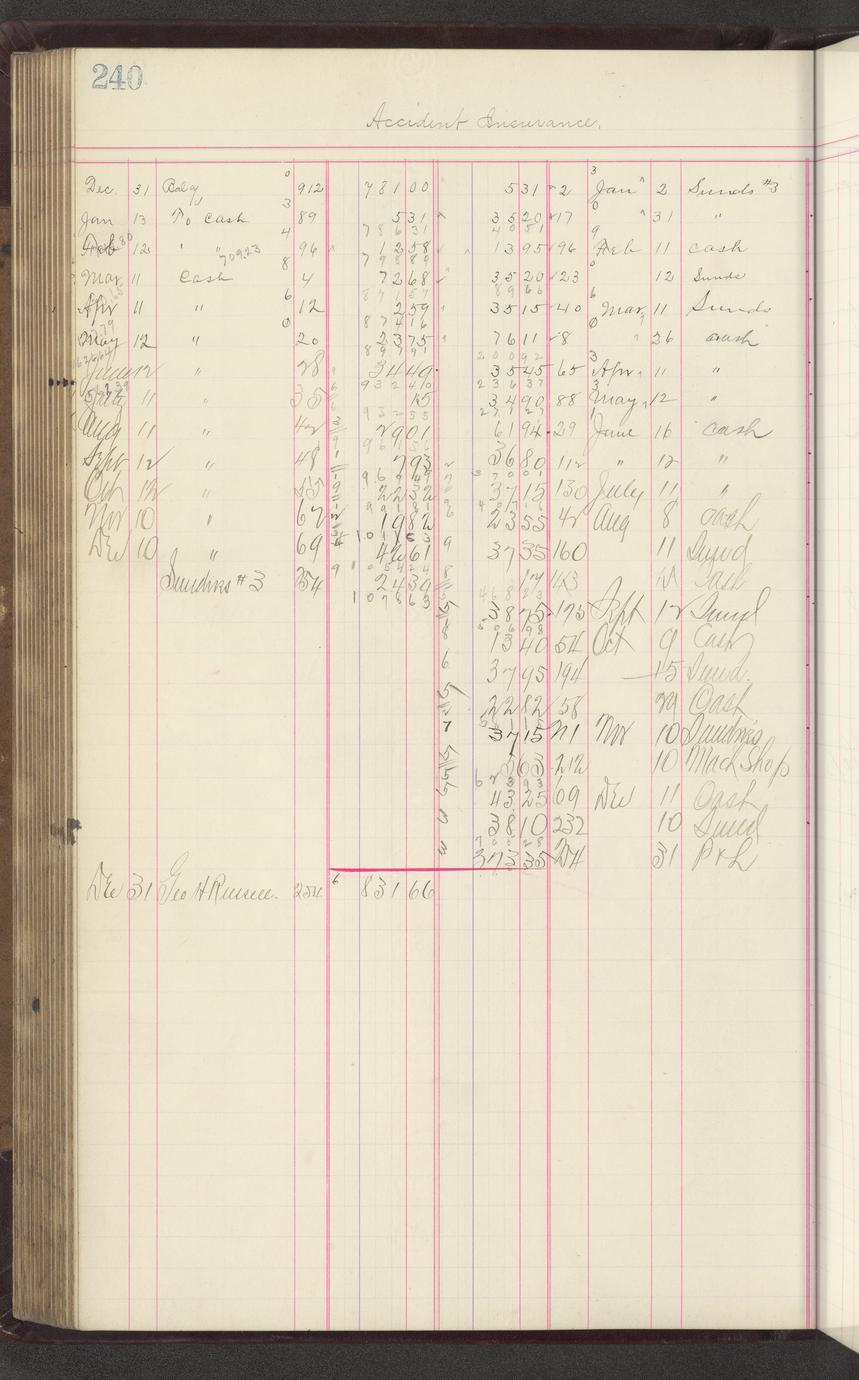 240
Accident Insurance.
Dec. 31 Balg 912 781 00 5 31 2 Jan 2 Sunds #3
Jan 13 To Cash 89 5 31 35 20 17 " 31 "
Feb 12 " " 96 12 58 13 95 96 Feb 11 cash
709.23
Mar 11 Cash 4 72 68 35 20 23 12 Sunds
Apr 11 " 12 2 59 35 15 40 Mar 11 Sunds
May 12 " 20 23 75 76 11 8 " 26 cash
June 12 " 28 34 49 35 45 65 Apr 11 "
11 " 35 15 34 90 88 May 12 "
Aug 11 " 42 29 01 61 94 29 June 16 cash
Sept 12 " 48 7 93 36 80 112 " 12 "
Oct 12 " 55 22 32 37 15 130 July 11 "
Nov 10 " 62 19 82 23 55 42 Aug 8 cash
Dec 10 " 69 42 61 37 35 160 11 Sund
Sundries #3 254 24 39 Cash
38 75 175 Sept 12 Sund
13 40 54 Oct 9 Cash
37 95 194 15 Sund.
22 82 58 29 Cash
37 15 Nov 10 Sundries
5 63 212 10 Mach Shop
43 25 69 Dec 11 Cash
38 10 232 10 Sund
373 35 31 P & L
Dec 31 Geo H Russell. 254 6 831 66